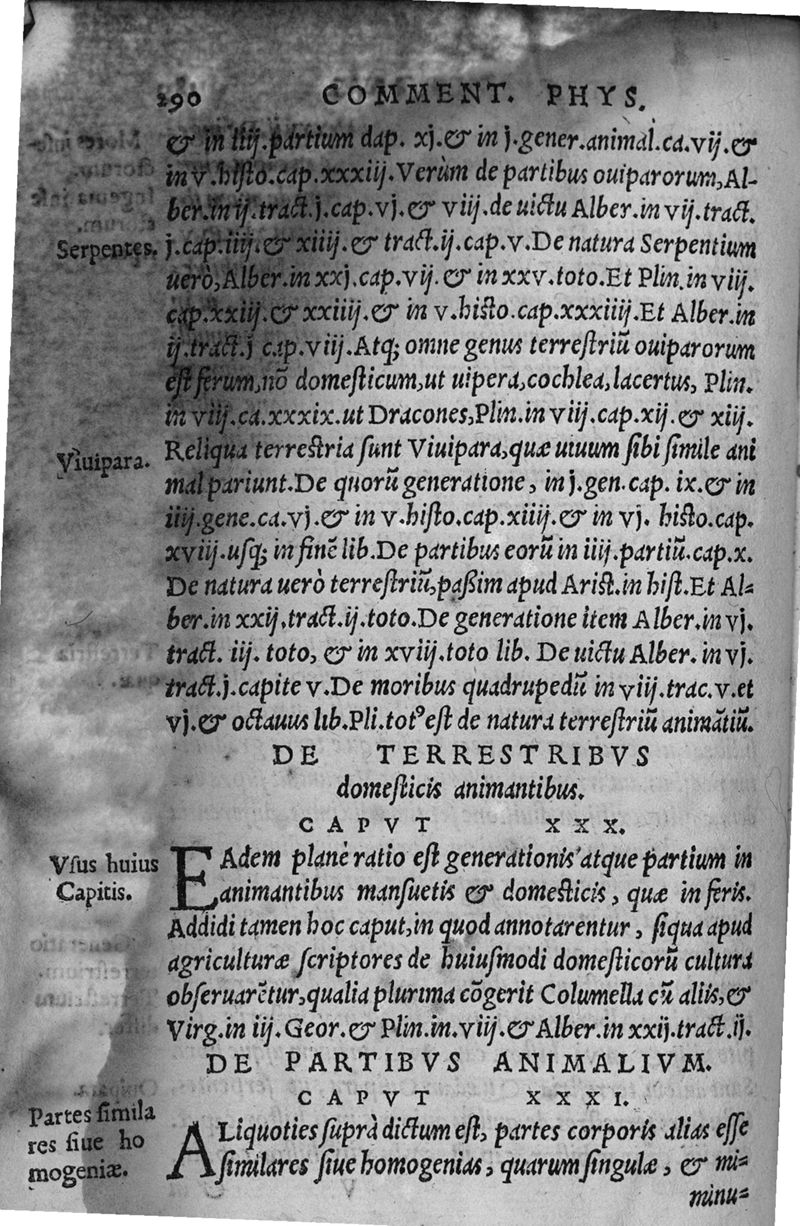 290 COMMENT. PHYS.
& in iiij.partium dap. xj.& in j.gener.animal.ca.vij.&
in v.histo.cap.xxxiij.Verùm de partibus ouiparorum,Al-
ber.in ij.tract.j.cap.vj.& viij.de uictu Alber.in vij.tract.
Serpentes.
j.cap.iiij.& xiiij.& tract.ij.cap.v.De natura Serpentium
uerò,Alber.in xxj.cap.vij.& in xxv.toto.Et Plin.in viij.
cap.xxiij.& xxiiij.& in v.histo.cap.xxxiiij.Et Alber.in
ij.tract.j cap.viij.Atq; omne genus terrestriũ ouiparorum
est ferum,nõ domesticum,ut uipera,cochlea,lacertus, Plin.
in viij.ca.xxxix.ut Dracones,Plin.in viij.cap.xij.& xiij.
Viuipara.
Reliqua terrestria sunt Viuipara,quæ uiuum sibi simile ani
mal pariunt.De quorũ generatione, in j.gen.cap. ix.& in
iiij.gene.ca.vj.& in v.histo.cap.xiiij.& in vj. histo.cap.
xviij.usq; in finẽ lib.De partibus eorũ in iiij.partiũ.cap.x.
De natura uerò terrestriũ,paßim apud Arist.in hist.Et Al-
ber.in xxij.tract.ij.toto.De generatione item Alber.in vj.
tract. iij. toto, & in xviij.toto lib. De uictu Alber. in vj.
tract.j.capite v.De moribus quadrupedũ in viij.trac.v.et
vj.& octauus lib.Pli.totꝰ est de natura terrestriũ animãtiũ.
DE TERRESTRIBVS
domesticis animantibus.
CAPVT XXX.
Vsus huius
Capitis.
EAdem planè ratio est generationis atque partium in
animantibus mansuetis & domesticis, quæ in feris.
Addidi tamen hoc caput,in quod annotarentur, siqua apud
agriculturæ scriptores de huiusmodi domesticorũ cultura
obseruarẽtur,qualia plurima cõgerit Columella cũ aliis,&
Virg.in iij.Geor.& Plin.in.viij.& Alber.in xxij.tract.ij.
DE PARTIBVS ANIMALIVM.
CAPVT XXXI.
Partes simila
res siue ho
mogeniæ.
ALiquoties suprà dictum est, partes corporis alias esse
similares siue homogenias, quarum singulæ, & mi-
minu-